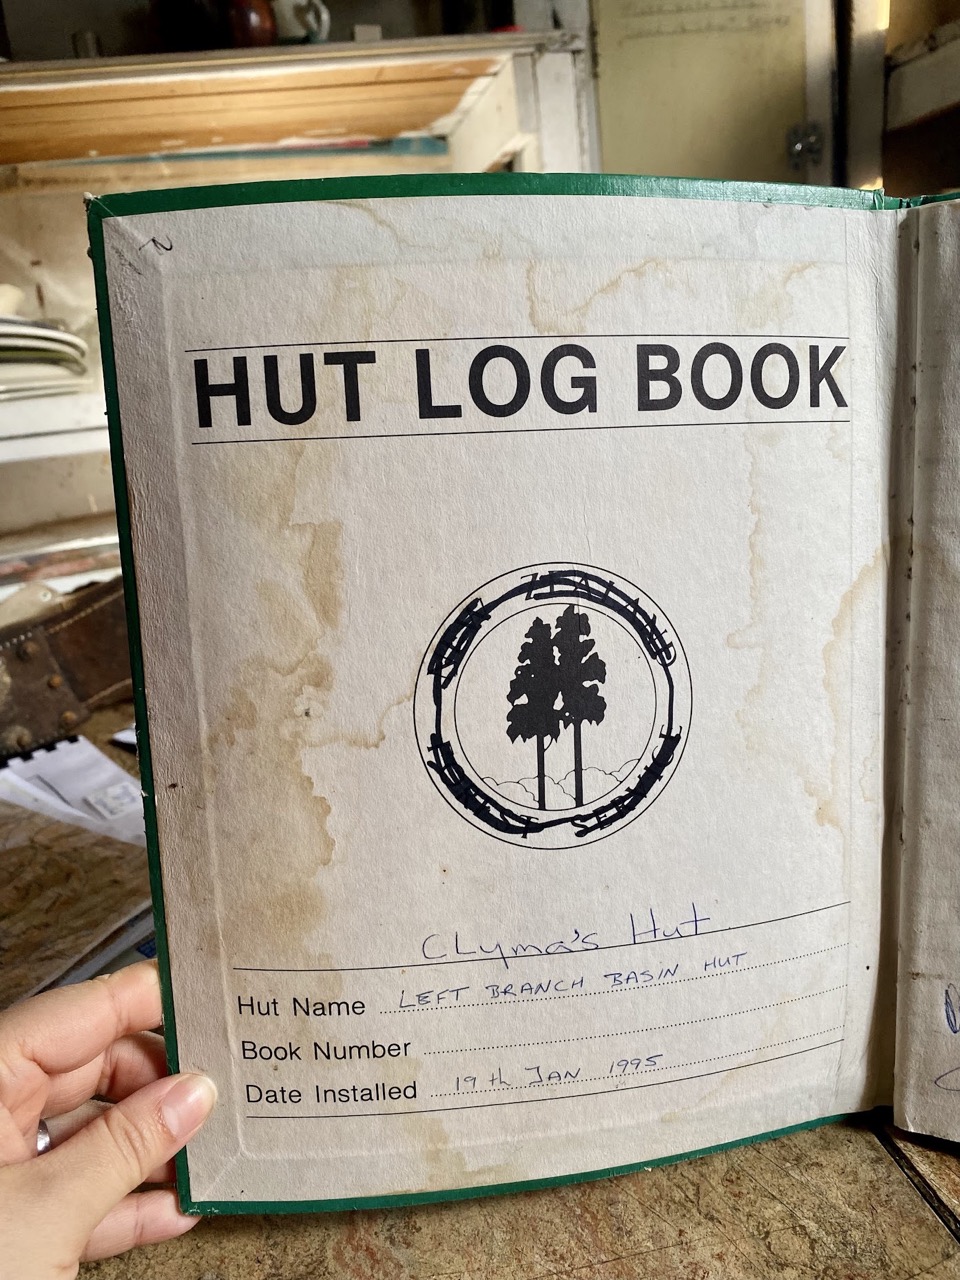 HUT LOG BOOK
NEW ZEALAND
FOREST SERVICE
CLyma's Hut
Hut Name LEFT BRANCH BASIN HUT
Book Number
Date Installed 19th JAN 1995